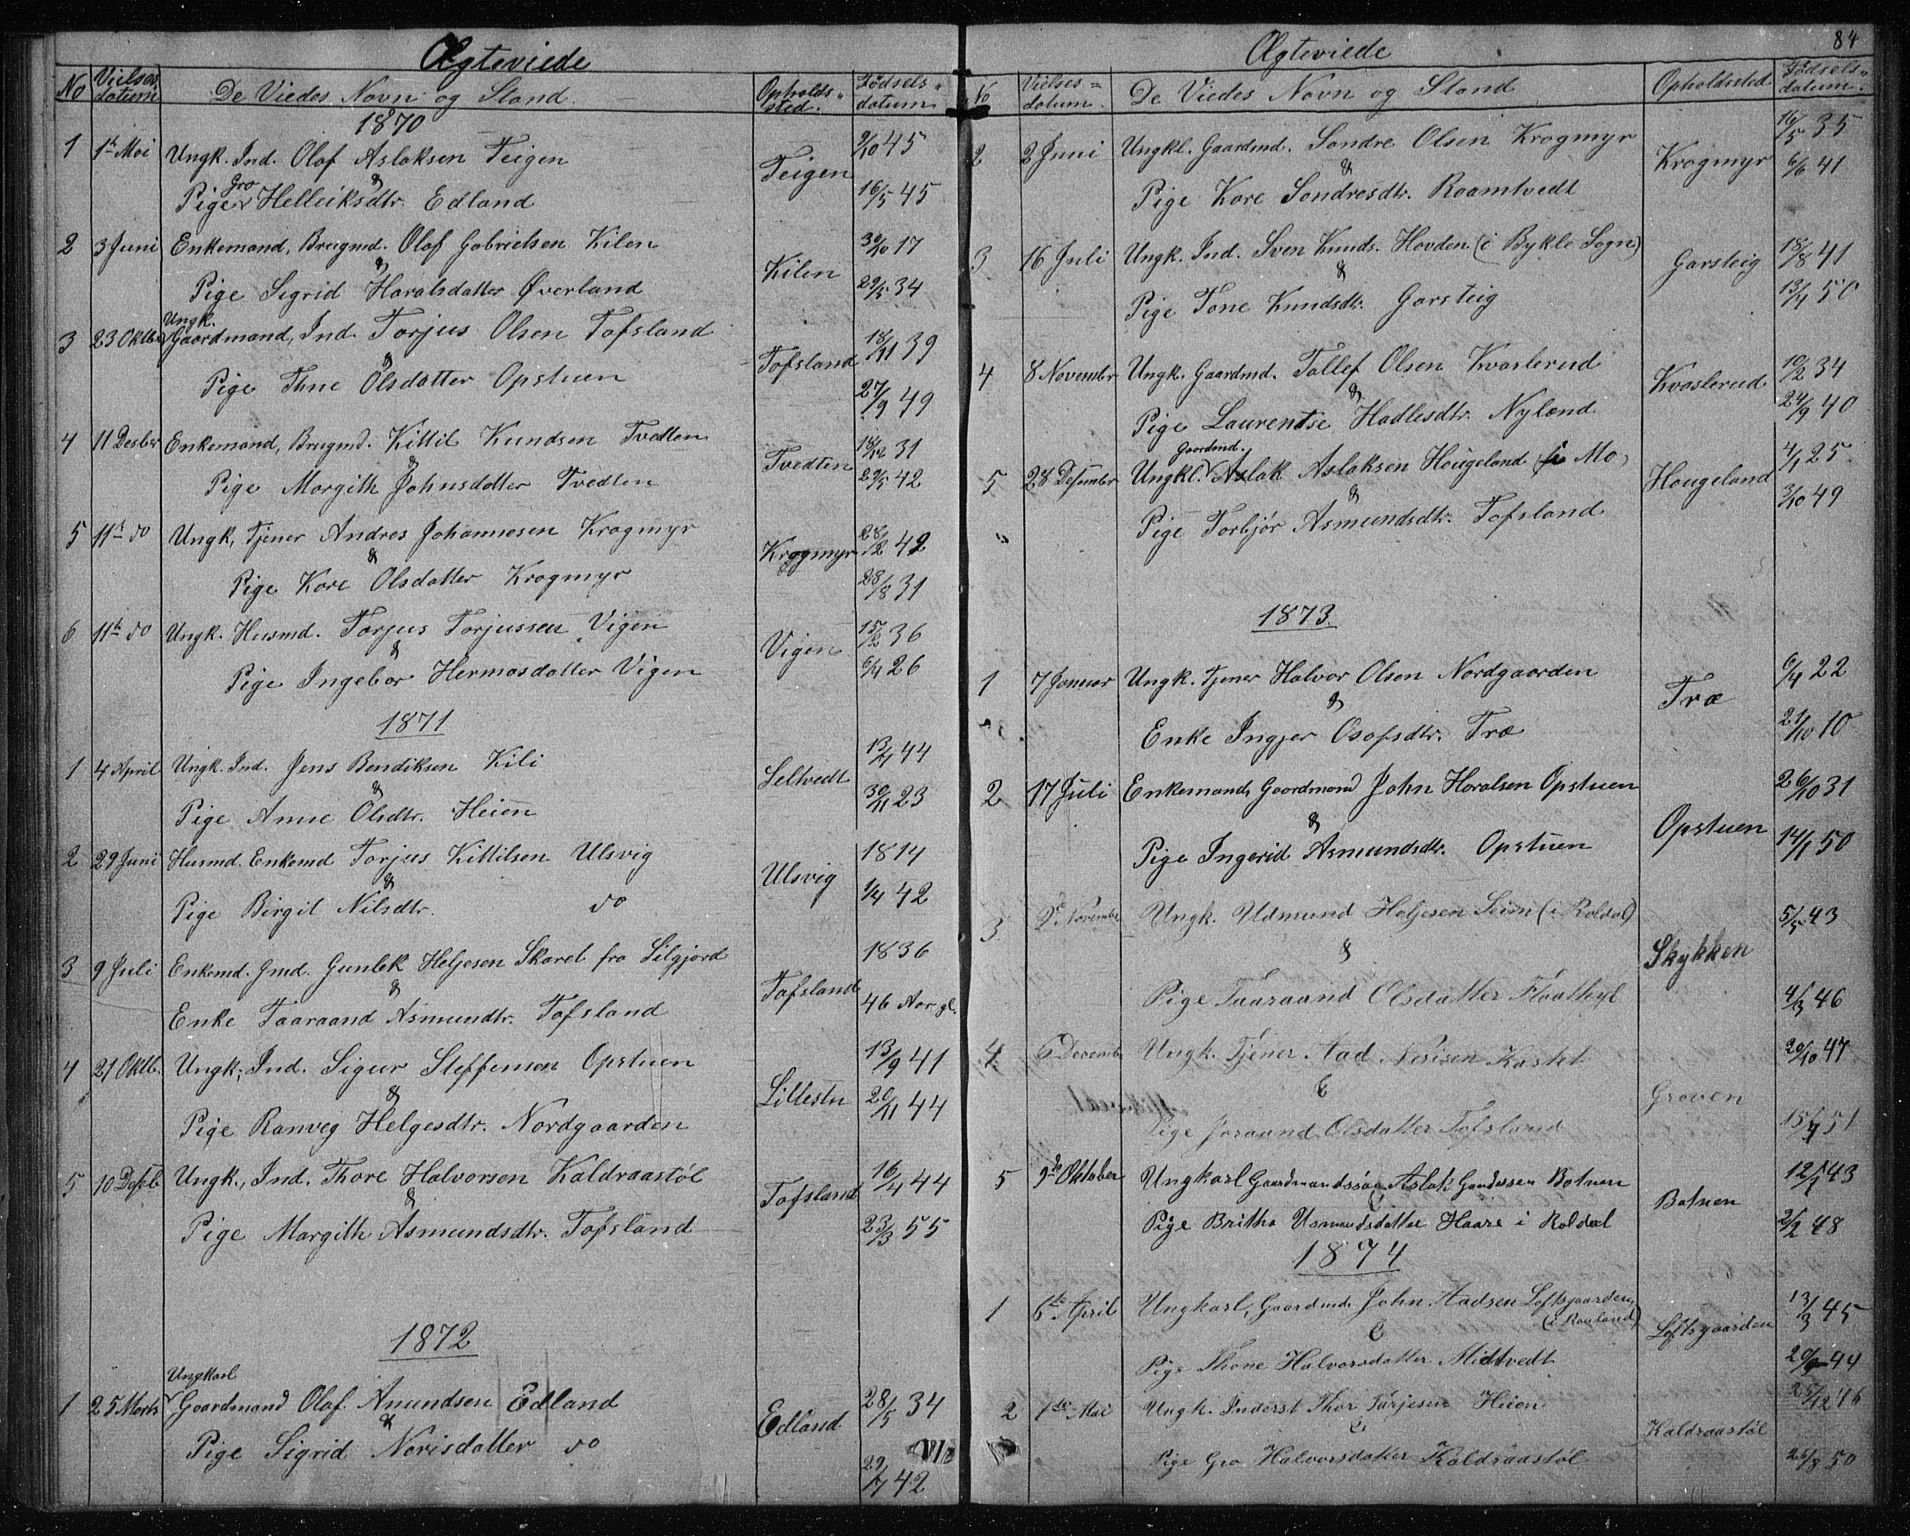 Ægteviede
No Vielses datum. De Viedes Navn og Stand. Opholds-sted. Fødsels-datum
1870
1 1te Mai Ungk. Ind. Olaf Aslaksen Teigen 45
&
Gro
Pige Helleiksdtr. Edland Teigen 16/5 45
2 3 Juni Enkemand, Brugmd. Olaf Gabrielsen Kilen 30/10 17
&
Pige Sigrid Haralsdatter Øverland Kilen 29/5 34
Ungk.
3 23 Oktbr Gaardmand, Ind. Torjus Olsen Tofsland 18/11 39
&
Pige Tone Olsdatter Opstuen Tofsland 27/9 49
4 11 Desber Enkemand, Brugmd. Kittil Knudsen Tvedten 18/12 31
&
Pige Margith Johnsdatter Tvedten Tvedten 29/5 42
5 11te do Ungk, Tjener Andres Johannesen Krogmyr 28/2 42
&
Pige Kare Olsdatter Krogmyr Krogmyr 28/8 31
6 11te do Ungk. Husmd. Torjus Torjussen Vigen 15/2 36
&
Pige Ingebor Hermosdatter Vigen Vigen 6/4 26
1871
1 4 April Ungk. Ind. Jens Bendiksen Kili 13/4 44
&
Pige Anne Olsdtr. Heien Seltvedt 30/11 23
2 29 Juni Husmd. Enkemd Torjus Kittilsen Ulsvig 1814
&
Pige Birgit Nilsdtr. do Ulsvig 1/4 42
3 9 Juli Enkemd. Gmd. Gunlek Heljesen Skarel fra Silgjord 1836
&
Enke Taaraand Asmundtr. Tofsland Tofsland 46 Aar gl.
4 21 Oktb. Ungk, Ind. Sigur Steffenson Opstuen 13/9 41
&
Pige Ranveg Helgesdtr. Nordgaarden Lillestu 20/11 44
5 10 Desb. Ungk., Ind. Thore Halvorsen Kaldraastøl 16/4 44
&
Pige Margith Asmundsdtr. Tofsland Tofsland 23/3 55
1872
Ungkarl
1 25 Marts Gaardmand Olaf Amundsen Edland 28/5 34
&
Pige Sigrid Norisdatter do Edland 29/7 42
84
Ægteviede
No Vielses-datum. De Viedes Navn og Stand Opholdssted Fødsels-datum.
2 2 Juni Ungkl. Gaardmd. Sondre Olsen Krogmyr 16/5 35
&
Pige Kare Sondresdtr. Raamtvedt Krogmyr 6/6 41
3 16 Juli Ungk. Ind. Sven Knuds. Hovden (i Bykle Sogn) 18/8 41
&
Pige Tone Knudsdtr. Garsteig Garsteig 13/4 50
4 8 Novembr Ungk. Gaardmd. Tallef Olsen Kvaslerud 10/2 34
&
Pige Laurentse Hadlesdtr. Nylænd Kvaslerud 24/9 40
Gaardmd.
5 28 Desember Ungkl. Aslak Aslaksen Hougeland (i Mo) 4/1 25
&
Pige Torbjør Asmundsdtr. Tofsland Hougeland 3/10 49
1873
1 7 Januar Ungk. Tjener Halvor Olsen Nordgaarden 6/4 22
&
Enke Ingjer Osofsdtr. Træ Træ 21/10 10
2 17 Juli Enkemand, Gaardmand John Haralsen Opstuen 26/10 31
&
Pige Ingerid Asmundsdtr. Opstuen Opstuen 14/1 50
3 Novembr Ungk. Udmund Heljesen Seim (i Roldal) 5/5 43
&
Pige Taaraand Olsdatter Flaathyl Skykken 4/3 46
4 6 Decembr Ungk. Tjener Aad Nerisen Kastet 20/10 47
&
Pige Joraand Olsdatter Tofsland Groven 15/4 51
5 9de Oktober Ungkarl Gaardmandssøn Aslak Gundersen Botnen 12/1 43
&
Pige Britha Usmundsdatter Haare i Roldal Botnen 2/2 48
1874
1 6te April Ungkarl, Gaardmd. John Aadsen Loftsgaarden, 13/3 45
(i Rauland)
&
Pige Thone Halvorsdatter Midtvedt Loftsgaarden 44
2 1te Mai Ungk. Inderst Thor Tarjesen Heien 25/12 46
&
Pige Gro Halvorsdatter Kaldraastøl Kaldraastøl 50